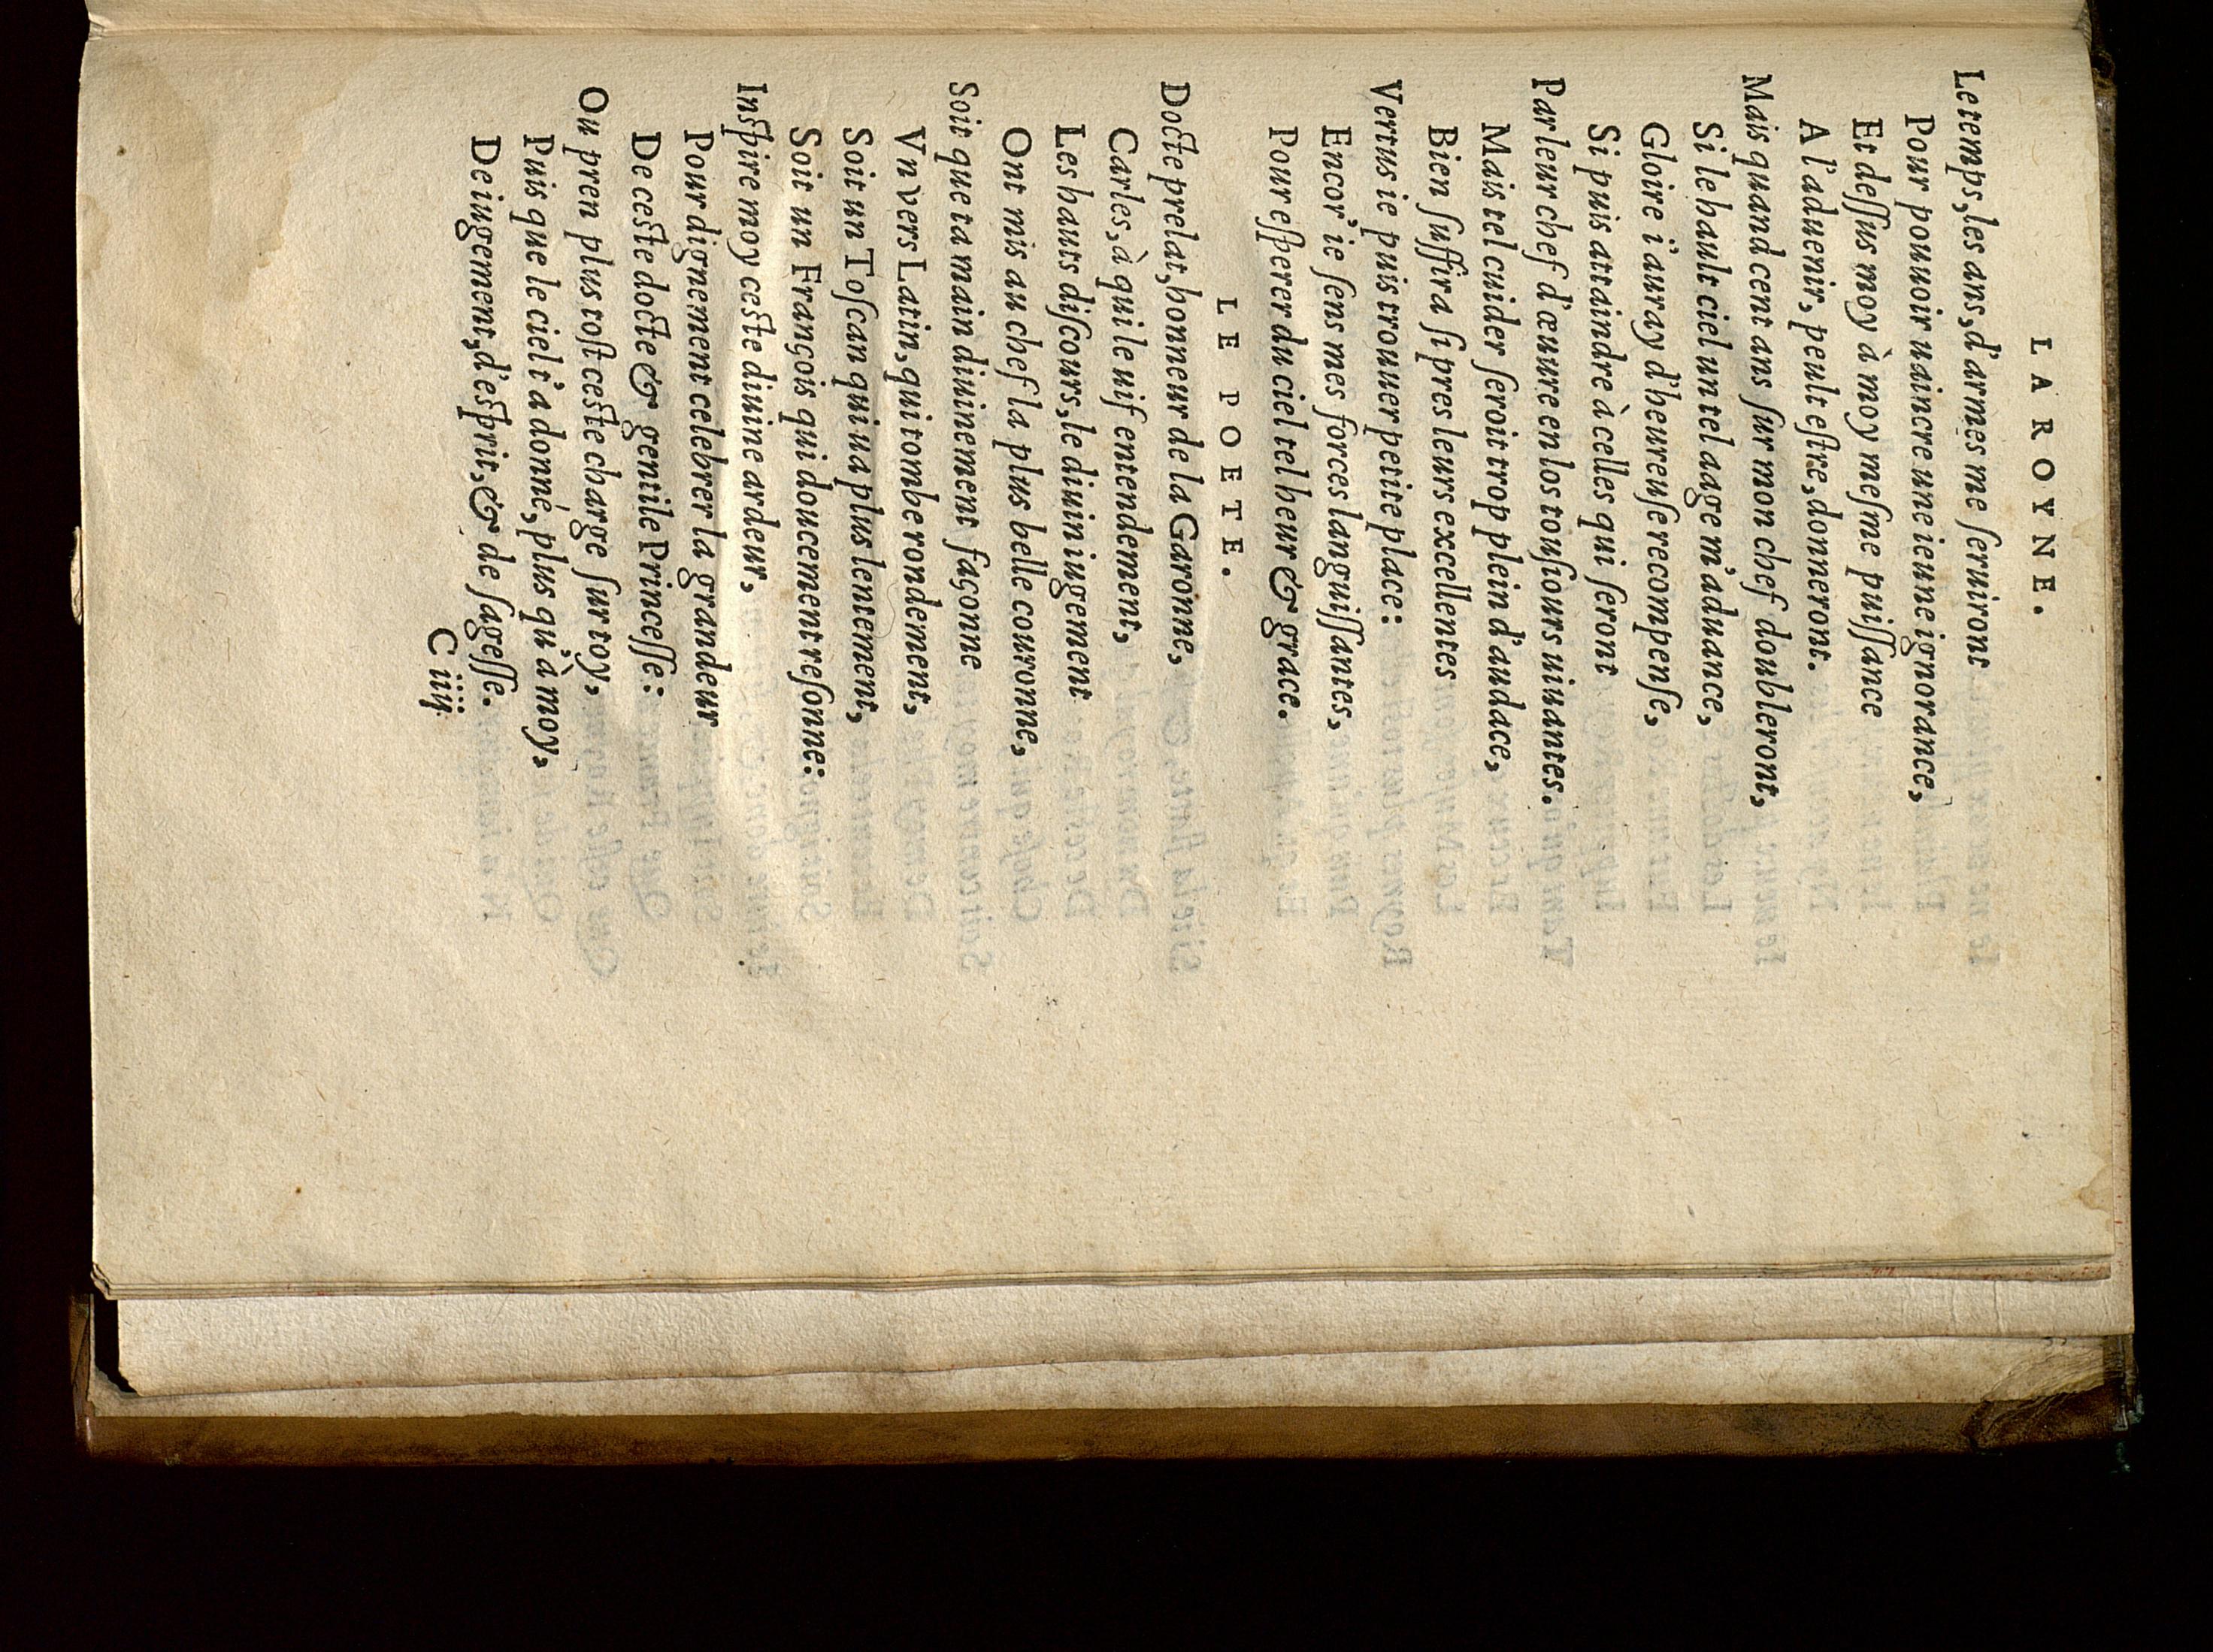 LA ROYNE.
Le temps, les ans, d'armes me ſeruiront
Pour pouuoir uaincre une ieune ignorance,
Et deſſus moy à moy meſme puiſſance
A l'aduenir, peult eſtre, donneront.
Mais quand cent ans ſur mon chef doubleront,
Si le hault ciel un tel aage m'aduance,
Gloire i'auray d'heureuſe recompenſe,
Si puis attaindre à celles qui ſeront
Par leur chef d'œuure en los touſiours uiuantes.
Mais tel cuider ſeroit trop plein d'audace,
Bien ſuffira ſi pres leurs excellentes
Vertus ie puis trouuer petite place:
Encor' ie ſens mes forces languiſſantes,
Pour eſperer du ciel tel heur & grace.
LE POETE.
Docte prelat, honneur de la Garonne,
Carles, à qui le uif entendement,
Les hauts diſcours, le diuin iugement
Ont mis au chef la plus belle couronne,
Soit que ta main diuinement façonne
Vn vers Latin, qui tombe rondement,
Soit un Toſcan qui ua plus lentement,
Soit un François qui doucement reſonne:
Inſpire moy ceſte diuine ardeur,
Pour dignement celebrer la grandeur
De ceſte docte & gentile Princeſſe:
Ou pren plus toſt ceſte charge ſur toy,
Puis que le ciel t'a donné, plus qu'à moy,
De iugement, d'eſprit, & de ſageſſe.
C iiij